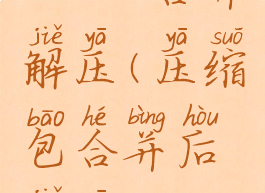 jiě yā yā suō
解压(压缩
bāo hé bìng hòu
包合并后